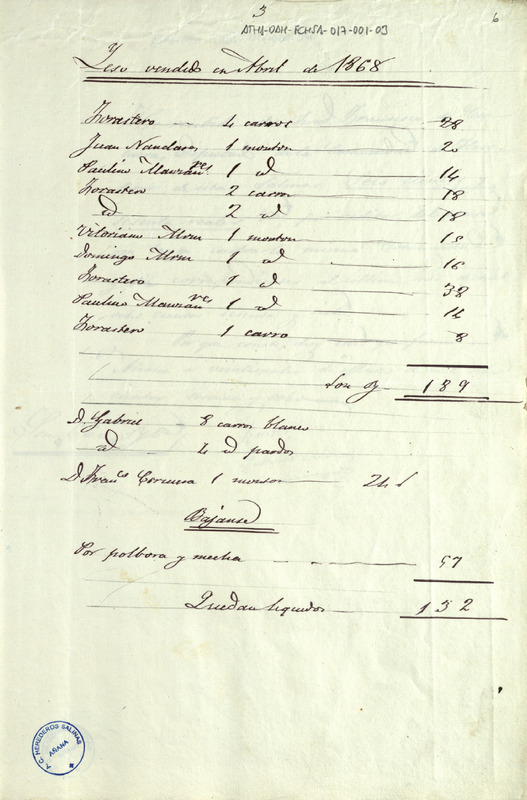 3
6
ATHA-DAH-FCHSA-017-001-09
Yeso vendido en Abril de 1868
Forastero 4 carros 28
Juan Nandares 1 monton 20
Paulino 1 id 14
Forastero 2 carros 18
id 2 id 18
Vitoriano 1 monton 15
Domingo 1 id 16
Forastero 1 id 38
Paulino 1 id 14
Forastero 1 carro 8
Son 189
D. Gabriel 8 carros blanco
id 4 id pardos
D. Franco Corcuera 1 monton 24
Bajanse
Por polbora y mecha 57
Quedan liquidos 132
C. HEREDEROS SALINAS
AÑANA